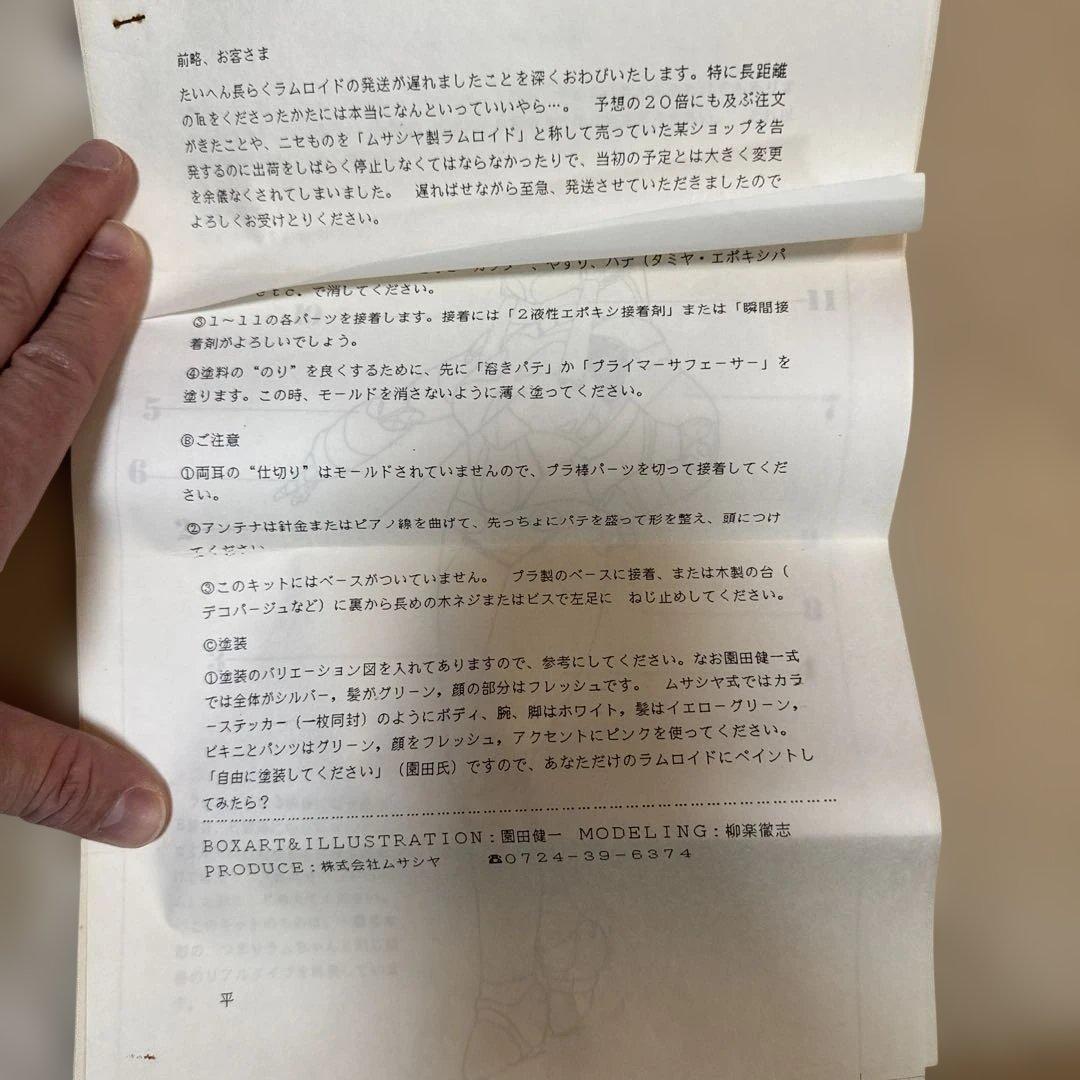 前略、お客さま
たいへん長らくラムロイドの発送が遅れましたことを深くおわびいたします。特に長距離
の℡をくださったかたには本当になんといっていいやら…。　予想の２０倍にも及ぶ注文
がきたことや、ニセものを「ムサシヤ製ラムロイド」と称して売っていた某ショップを告
発するのに出荷をしばらく停止しなくてはならなかったりで、当初の予定とは大きく変更
を余儀なくされてしまいました。　遅ればせながら至急、発送させていただきましたので
よろしくお受けとりください。
カッター、やすり、パテ（タミヤ・エポキシパ
ｅｔｃ．で消してください。
③１～１１の各パーツを接着します。接着には「２液性エポキシ接着剤」または「瞬間接
着剤がよろしいでしょう。
④塗料の“のり”を良くするために、先に「溶きパテ」か「プライマーサフェーサー」を
塗ります。この時、モールドを消さないように薄く塗ってください。
Ⓑご注意
①両耳の“仕切り”はモールドされていませんので、プラ棒パーツを切って接着してくだ
さい。
②アンテナは針金またはピアノ線を曲げて、先っちょにパテを盛って形を整え、頭につけ
てください
③このキットにはベースがついていません。　プラ製のベースに接着、または木製の台（
デコパージュなど）に裏から長めの木ネジまたはビスで左足に　ねじ止めしてください。
Ⓒ塗装
①塗装のバリエーション図を入れてありますので、参考にしてください。なお園田健一式
では全体がシルバー，髪がグリーン，顔の部分はフレッシュです。　ムサシヤ式ではカラ
ーステッカー（一枚同封）のようにボディ、腕、脚はホワイト，髪はイエローグリーン，
ビキニとパンツはグリーン，顔をフレッシュ，アクセントにピンクを使ってください。
「自由に塗装してください」（園田氏）ですので、あなただけのラムロイドにペイントし
てみたら？
ＢＯＸＡＲＴ＆ＩＬＬＵＳＴＲＡＴＩＯＮ：園田健一　ＭＯＤＥＬＩＮＧ：柳楽徹志
ＰＲＯＤＵＣＥ：株式会社ムサシヤ　　☎０７２４－３９－６３７４
平